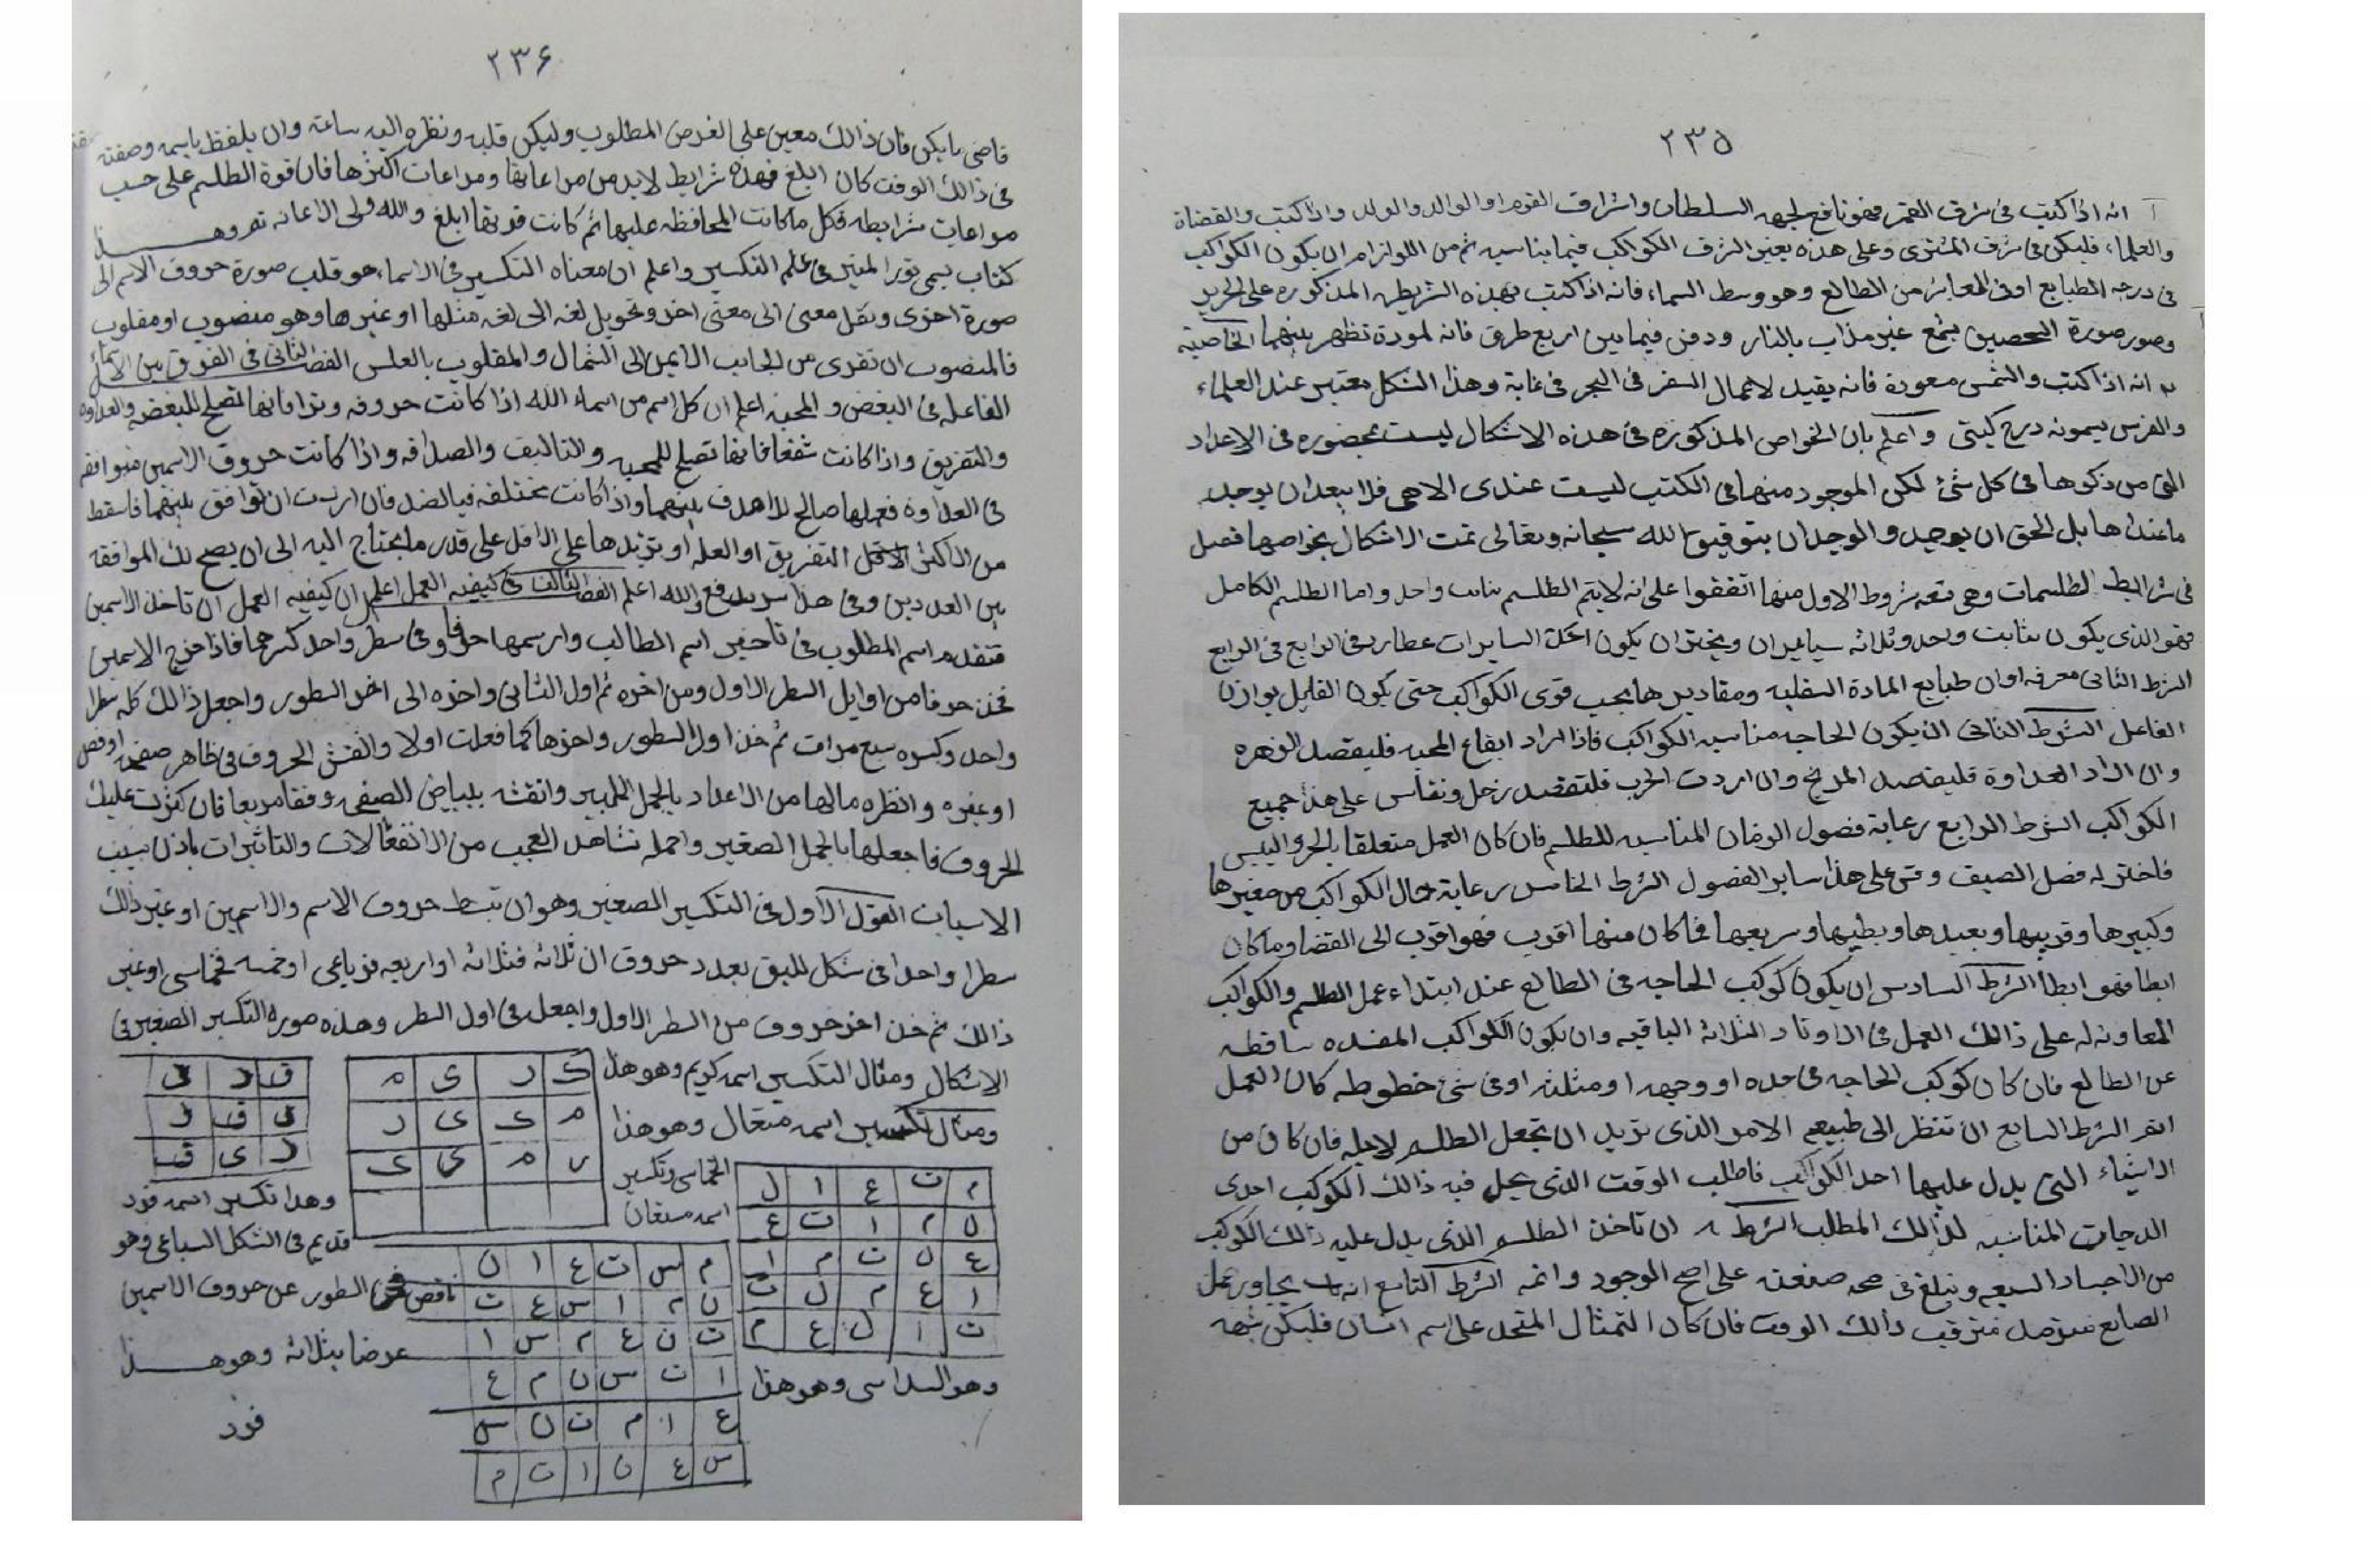 ٢٣٥
انه اذا كتبت فى شرف القمر فهو نافع لجهة السلطان واشراف القوم او الوالد والولد واذا كتبت والقضاة
والعلماء فليكن فى شرف المشترى وعلى هذه يعتبر الشرف الكواكب فيما يناسبه ثم من اللوازم ان يكون الكواكب
فى درجه الطبايع اوفى العاشر من الطالع وهو وسط السماء فانه اذا كتبت بهذه الشريطه المذكوره على الحرير
وصور صورة الشخصين بشمع غير مذاب بالنار ودفن فيما بين اربع طرق فانه لمودة تظهر بينهما الخاصية
انه اذا كتبت والشمس مسعودة فانه يفيد لاعمال السفر فى البحر فى غاية وهذا الشكل معتبر عند العلماء
والفرس يسمونه درج كيتى واعلم بان الخواص المذكوره فى هذه الاشكال ليست بمحصوره فى الاعداد
التى من ذكرها فى كل شئ لكن الموجود منها فى الكتب ليست عندى الا هى فلا يبعد ان يوجد
ما عندها بل الحق ان يوجد والوجدان بتوفيق الله سبحانه وتعالى تمت الاشكال بخواصها فصل
فى شرايط الطلسمات وهى تسعه شروط الاول منها اتفقوا على انه لايتم الطلسم بثابت واحد واما الطلسم الكامل
فهو الذى يكون بثابت واحد وثلاثه سيا ويختر ان يكون احد السايرات عطارد فى الرابع فى الرابع
الشرط الثانى معرفه اوان طبايع المادة السفليه ومقاديرها بحسب قوى الكواكب حتى يكون القابل يوازن
الفاعل الشرط الثانى ان يكون الحاجه مناسبه الكواكب فاذا اراد ايقاع المحبه فليقصد الزهره
وان اراد العداوة فليقصد المريخ وان اردت الحرب فلتقصد زحل ونقاس على هذا جميع
الكواكب الشرط الرابع رعاية فصول الزمان المناسبه للطلسم فان كان العمل متعلقا بالحر واليبس
فاختر له فصل الصيف وقس على هذا ساير الفصول الشرط الخامس رعاية حال الكواكب من صغيرها
وكبيرها وقريبها وبعيدها وبطيها وسريعها فما كان منها اقرب فهو اقرب الى القضا وما كان
ابطا فهو ابطا الشرط السادس ان يكون كوكب الحاجه فى الطالع عند ابتداء عمل الطلسم والكواكب
المعاونه له على ذالك العمل فى الاوتاد الثلاثه الباقيه وان يكون الكواكب المفسده ساقطه
عن الطالع فان كان كوكب الحاجه فى حده او وجهه او مثلثه اوفى شئ حظوظه كان العمل
الشرط السابع ان تنظر الى طبيعه الامر الذى تريد ان تجعل الطلسم لاجله فان كان من
الاشياء التى يدل عليها احد الكواكب فاطلب الوقت الذى يحل فيه ذالك الكوكب احدى
الدرجات المناسبه لذالك المطلب الشرط ٨ ان تاخذ الطلسم الذى يدل عليه ذالك الكوكب
من الاجساد السبعه وتبلغ فى صحه صنعته على اصح الوجود واتمه الشرط التاسع انه
الصانع مترقب ذالك الوقت فان كان التمثال المتخذ على اسم انسان فليكن شبهه
٢٣۶
قاضى ما يكن فان ذالك معين على الغرض المطلوب وليكن قلبه ونظره اليه ساعته وان يلفظ باسمه وصفته
فى ذالك الوقت كان ابلغ فهذه شرايط لابد من مراعاتها ومراعات اكثرها فان قوة الطلسم على حسب
مراعات شرايطه فكل ما كانت المحافظه عليها اتم كانت قوتها ابلغ والله ولى الاعانه تم وهذا
كتاب يسمى نور المنير فى علم التكسير واعلم ان معناه التكسير فى الاسماء هو قلب صورة حروف الاسم الى
صورة اخرى ونقل معنى الى معنى اخر وتحويل لغه الى لغه مثلها او غيرها وهو منصوب او مقلوب
فالمنصوب ان تقرى من الجانب الايمن الى الشمال والمقلوب بالعكس الفصل الثانى فى الفرق بين الاسماء
الفاعله فى البغض والمحبه اعلم ان كل اسم من اسماء الله اذا كانت حروفه وترا فانها تصلح للبغض والعداوه
والتفريق واذا كانت شفعا فانها تصلح للمحبه والتاليف والصداقه واذا كانت حروف الاسمين متوافقه
فى العداوه فعملها صالح للاهدف بينهما واذا كانت مختلفه فبالضد فان اردت ان توافق بينهما فاسقط
من الاكثر الاقل التفريق او العله او تزيدها على الاقل على قدر ما يحتاج اليه الى ان يصح لك الموافقه
بين العددين وفى هذا سر بديع والله اعلم الفصل الثالث فى كيفيه العمل اعلم ان كيفيه العمل ان تاخذ الاسمين
فتقدم اسم المطلوب فى تاخير اسم الطالب وارسمها حرفا وفى سطر واحد كسرهما فاذا خرج الاسمين
فخذ حرفا من اوايل السطر الاول ومن اخره ثم اول الثانى واخره الى اخر السطور واجعل ذالك كله سطرا
واحد وكسره سبع مرات ثم خذ اول السطور واخرها كما فعلت اولا والنقش الحروف فى ظاهر صفحه
او غيره وانظره مالها من الاعداد بالجمل الكبير وانقشه ببياض الصفحه وفقا مربعا فان كثرت عليك
الحروف فاجعلها بالجمل الصغير واحمله تشاهد العجب من الانفعالات والتاثيرات باذن مسبب
الاسباب القول الاول فى التكسير الصغير وهو ان تبسط حروف الاسم والاسمين او غير ذالك
سطرا واحدا فى شكل لليق بعدد حروف ان ثلاثه فثلاثه او اربعه فرباعى او خمسه فخماسى او غير
ذالك ثم خذ اخر حروف من السطر الاول واجعل فى اول السطر وهذه صورة التكسير الصغير فى
الاشكال ومثال التكسير اسمه كريم وهو هذا
ك ر ى م
م ك ى ر
ر م ى ك
ق و ى
ى ق و
و ى ق
ومثال تكسير اسمه متعال وهو هذا
الخماسى وتكسير
اسمه مستعان
م ت ع ا ل
ل م ا ت ع
ع ل ت م ا
ا ع م ل ت
ت ا ل ع م
وهو السداسى وهو هذا
م س ت ع ا ن
ن م ا س ع ت
ت ن ع م س ا
ا ت س ن م ع
ع ا م ت ن س
س ع ن ا ت م
وهذا تكسير اسمه فرد
قديم فى الشكل السباعى وهو
ناقص السطور عن حروف الاسمين
عرضا بثلاثه وهو هذا
فرد